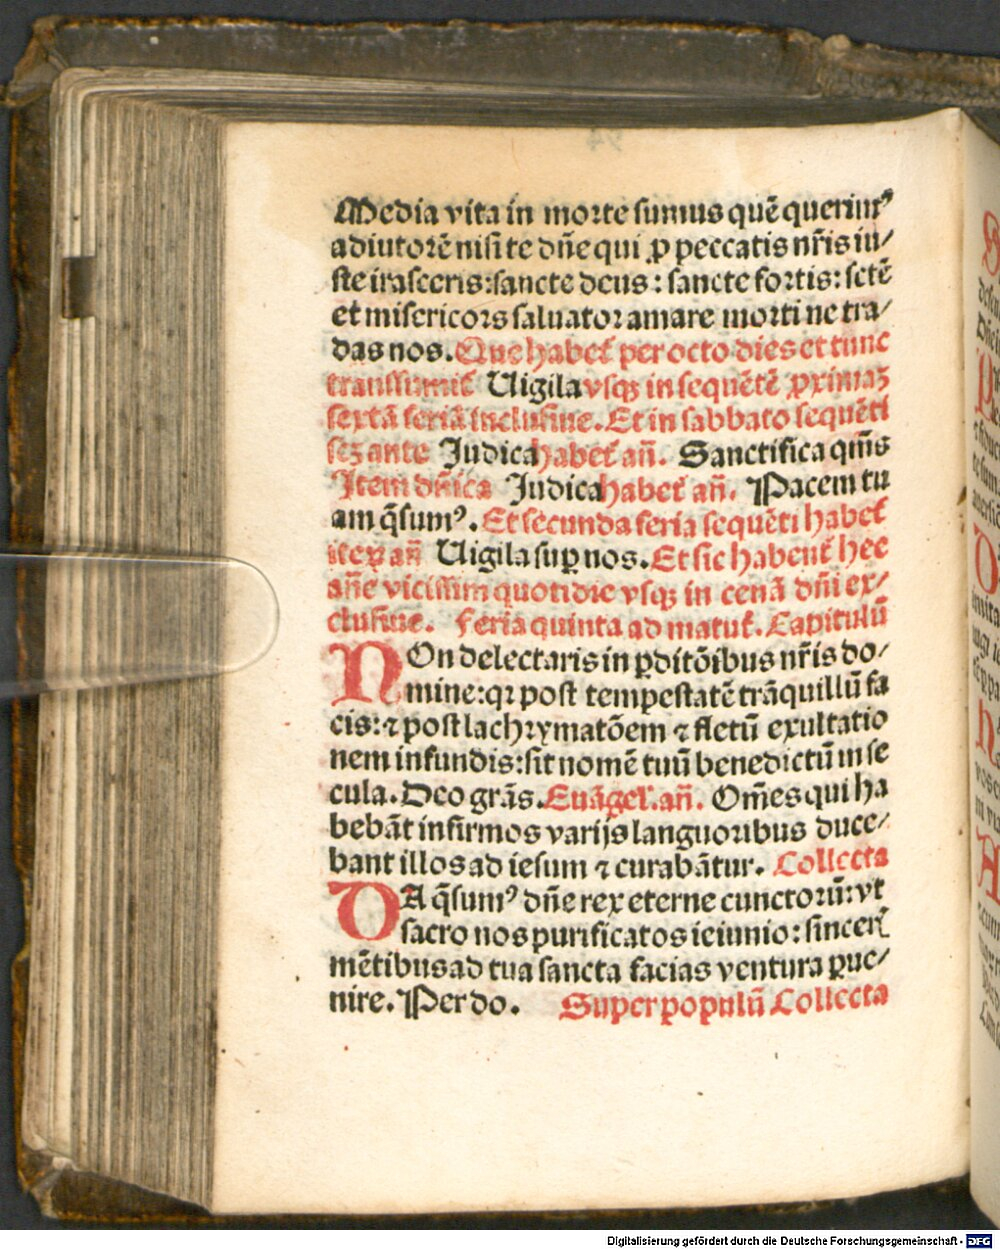 Media vita in morte sumus quē querimꝰ
adiutorē nisi te dn̄e qui ꝓ peccatis nr̄is iu/
ste irasceris: sancte deus: sancte fortis: sctē
et misericors saluator amare morti ne tra/
das nos. Que habet᷑ per octo dies et tunc
transsumit᷑ Uigila vsqꝫ in sequētē ꝓximaꝫ
sextā feriā inclusiue. Et in sabbato sequēti
seꝫ ante Judica habet᷑ an̄. Sanctifica qm̄s
Item dn̄ica Judica habet᷑ an̄. Pacem tu
am q̄sumꝰ. Et secunda feria sequēti habet᷑
iteꝝ an̄ Uigila suꝑ nos. Et sic habent᷑ hee
an̄e vicissim quotidie vsqꝫ in cenā dn̄i ex/
clusiue. Feria quinta ad matut᷑. Capitulū
NOn delectaris in ꝑditōibus nr̄is do/
mine: qꝛ post tempestatē trāquillū fa
cis: ⁊ post lachrymatōem ⁊ fletū exultatio
nem infundis: sit nomē tuū benedictū in se
cula. Deo grās. Euāgel᷑. an̄. Om̄es qui ha
bebāt infirmos varijs languoribus duce/
bant illos ad iesum ⁊ curabātur. Collecta
DA q̄sumꝰ dn̄e rex eterne cunctorū: vt
sacro nos purificatos ieiunio: sincer᷑
mētibus ad tua sancta facias ventura ꝑue/
nire. Per do. Super populū Collecta
Digitalisierung gefördert durch die Deutsche Forschungsgemeinschaft - DFG